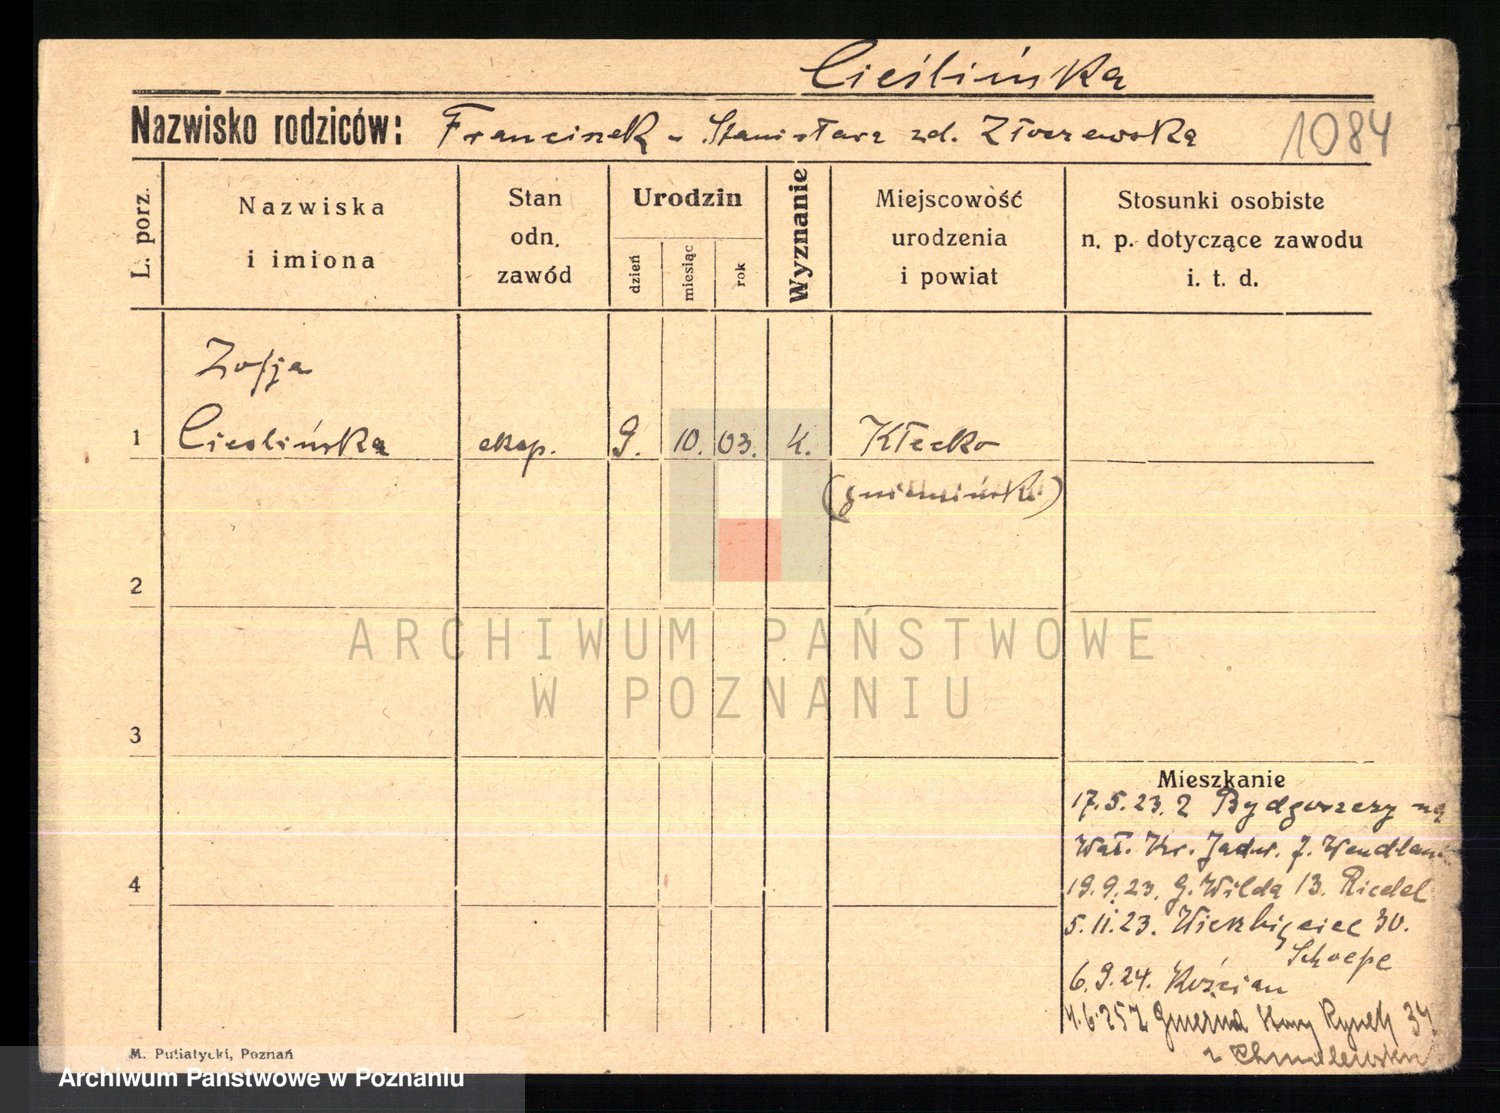 Cieślińska
Nazwisko rodziców: Franciszek - Stanisława zd. Złoczewska
1084
L. porz.
Nazwiska
i imiona
Stan
odn.
zawód
Urodzin
dzień
miesiąc
rok
Wyznanie
Miejscowość
urodzenia
i powiat
Stosunki osobiste
n. p. dotyczące zawodu
i. t. d.
Zofja
1 Cieślińska eksp. 9. 10. 03. k. Kłecko
2
ARCHIWUM PAŃSTWOWE
W POZNANIU
3
Mieszkanie
17.5.23. z Bydgoszczy na
Wał. Kr. Jadw. J.
4
19.9.23. G. Wilda 13. Riedel
5.11.23. Wierzbięcice 30.
Schoepe
6.9.24. Kościan
4.6.25 z Gniezna Nowy Rynek
M. Putiatycki, Poznań
Archiwum Państwowe w Poznaniu